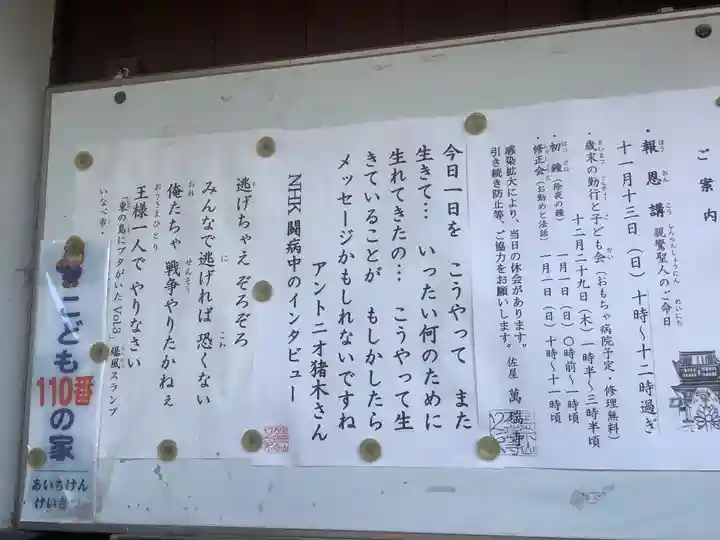 ご案内
・報恩講 親鸞聖人のご命日
ほうおんこう しんらんしょうにん めいにち
十一月十三日(日)十時〜十二時過ぎ
・歳末の勤行と子ども会(おもちゃ病院予定 修理無料)
さいまつ ごんぎょう こ かい
十二月二十九日(木)一時半〜三時半頃
・初鐘(除夜の鐘) 一月一日(日)〇時前〜一時頃
はつがね
・修正会(お勤めと法話) 一月一日(日)十時〜十一時頃
感染拡大により、当日の休会があります。
引き続き防止等、ご協力をお願いします。 佐屋 萬瑞寺
今日一日を こうやって また
生きて… いったい何のために
生れてきたの… こうやって生
きていることが もしかしたら
メッセージかもしれないですね
アントニオ猪木さん
NHK 闘病中のインタビュー
逃げちゃえ ぞろぞろ
に
みんなで逃げれば 恐くない
に こわ
俺たちゃ 戦争やりたかねぇ
おれ せんそう
王様一人で やりなさい
おうさまひとり
「東の島にブタがいた Vol.3」爆風スランプ
いなべ市
こども
110番
の家
あいちけん
けいさつ